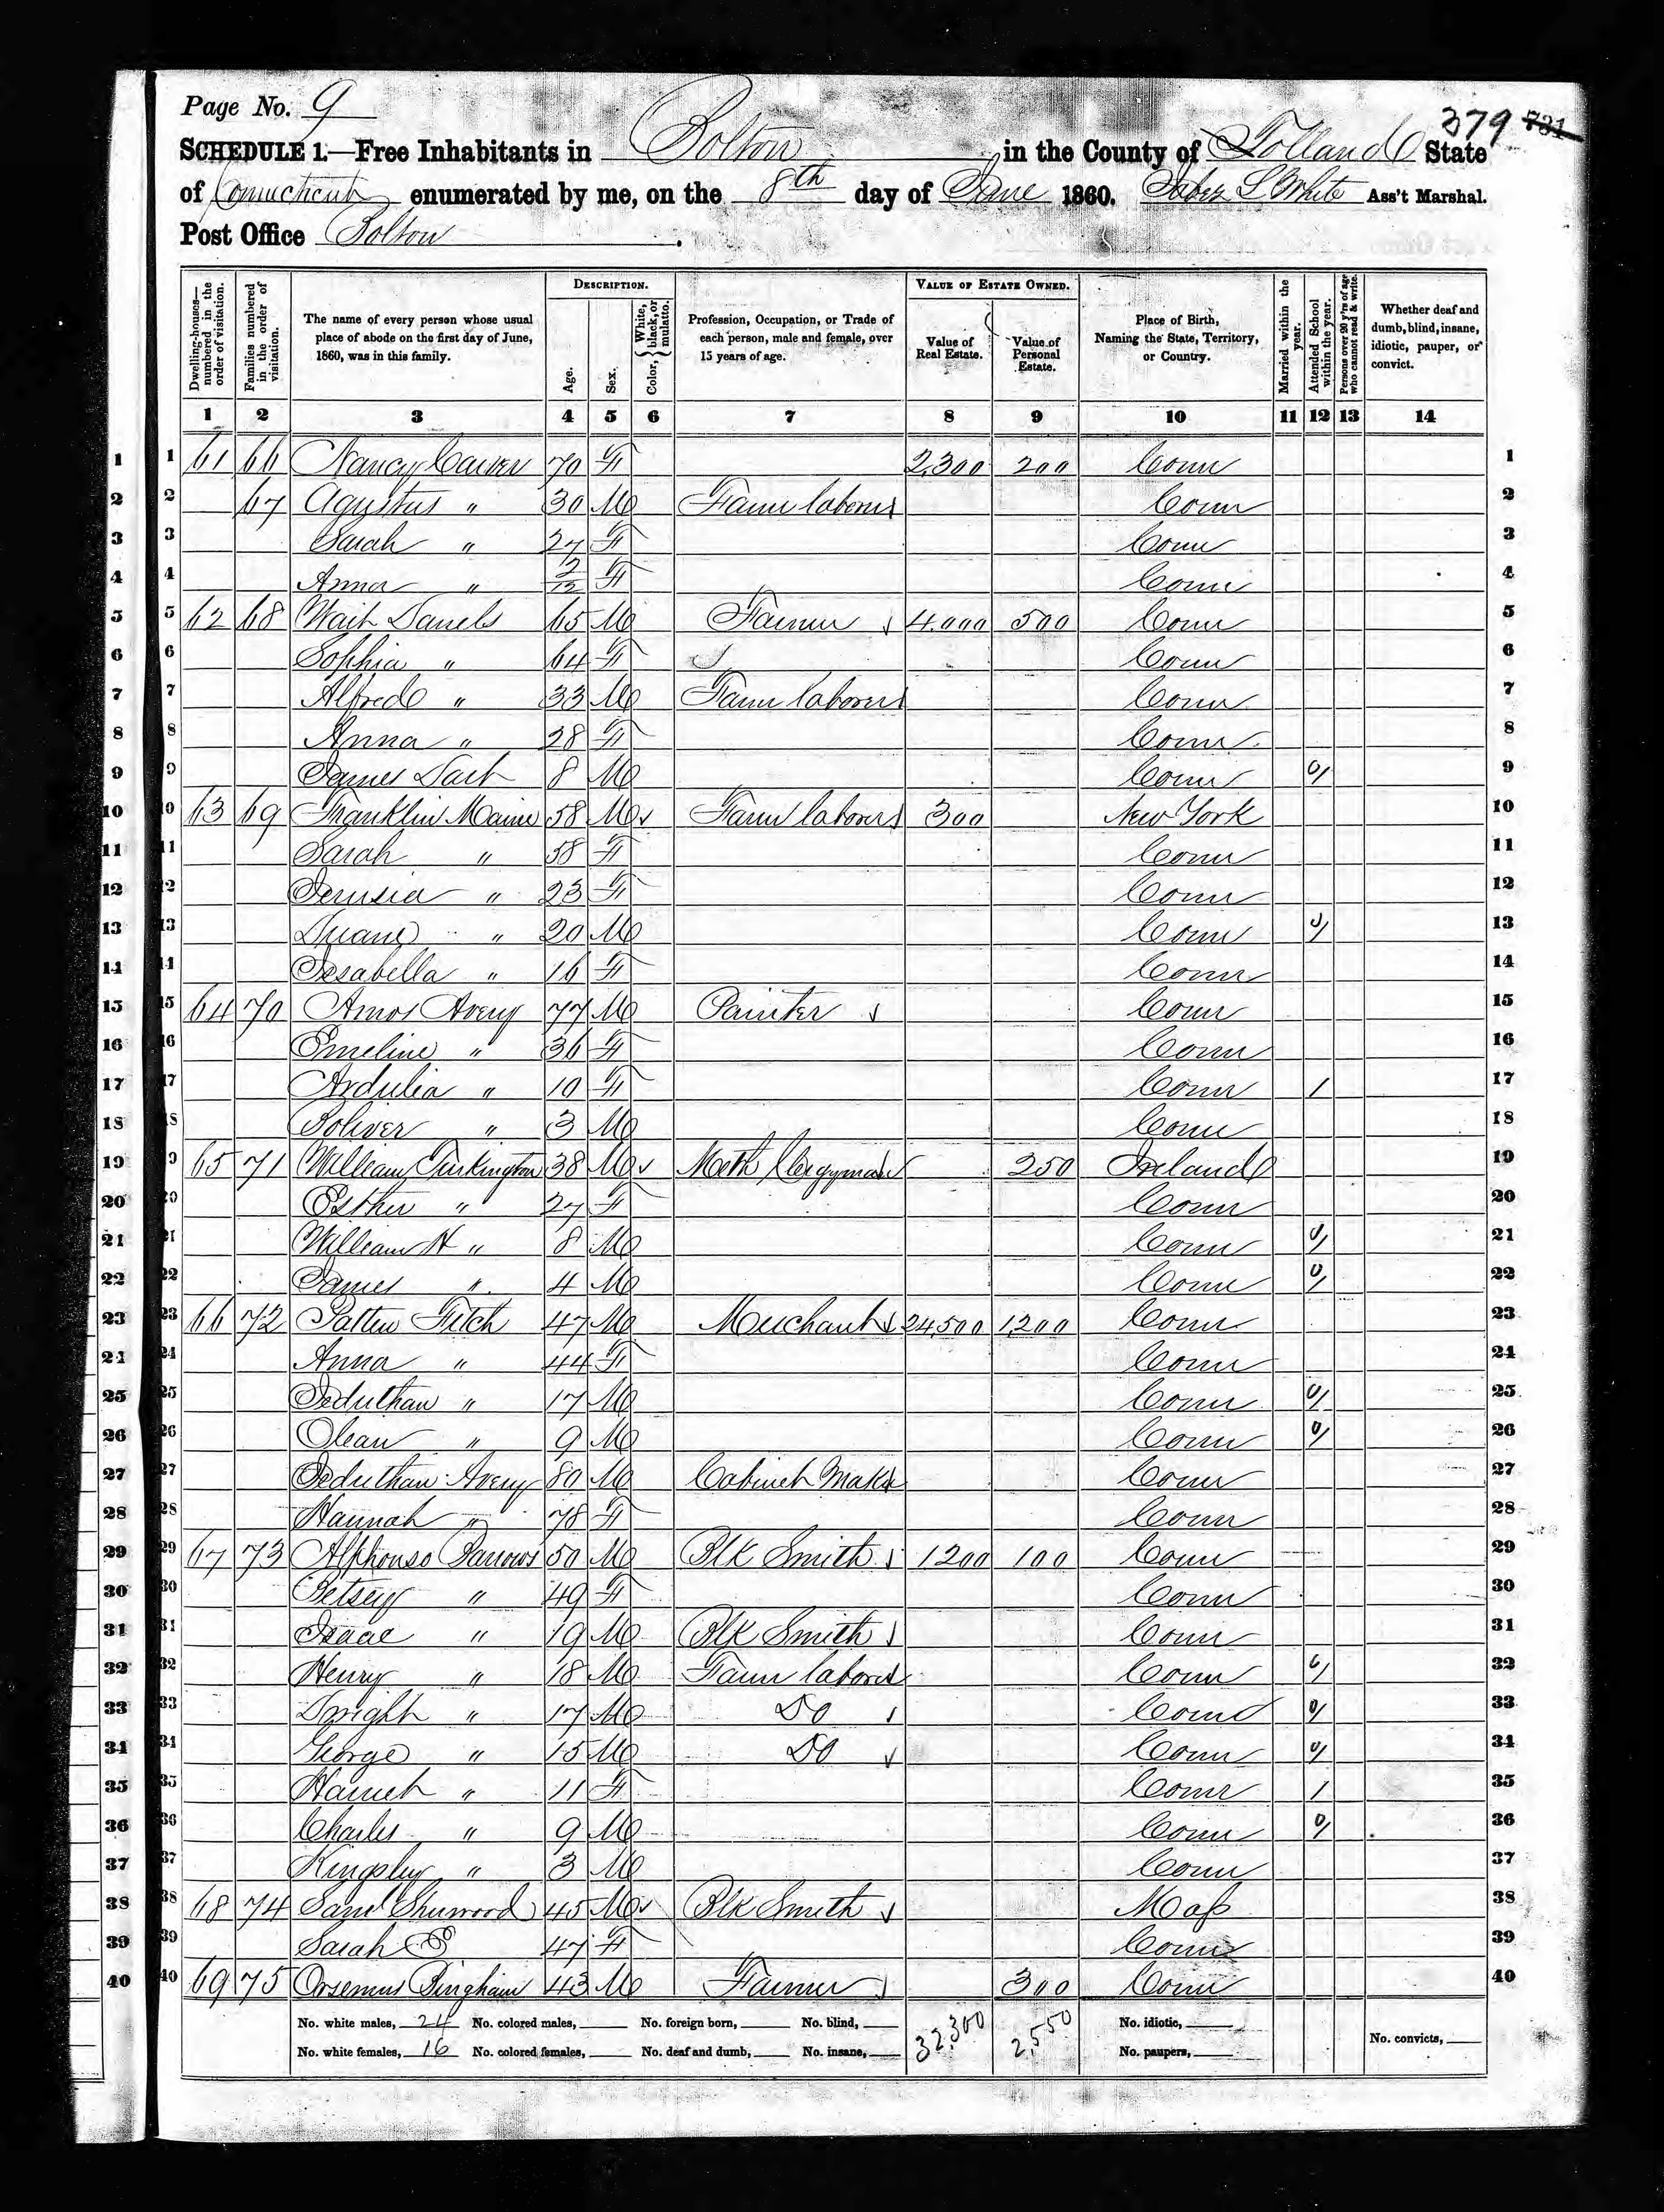 Page No. 9
379 731
SCHEDULE 1.—Free Inhabitants in Bolton in the County of Tolland State
of Connecticut enumerated by me, on the 8th day of June 1860. Jabez L White Ass't Marshal.
Post Office Bolton.
Dwelling-houses—numbered in the order of visitation. Families numbered in the order of visitation. The name of every person whose usual place of abode on the first day of June, 1860, was in this family. DESCRIPTION. Age. Sex. Color, { White, black, or mulatto. Profession, Occupation, or Trade of each person, male and female, over 15 years of age. VALUE OF ESTATE OWNED. Value of Real Estate. Value of Personal Estate. Place of Birth, Naming the State, Territory, or Country. Married within the year. Attended School within the year. Persons over 20 y'rs of age who cannot read & write. Whether deaf and dumb, blind, insane, idiotic, pauper, or convict.
1 2 3 4 5 6 7 8 9 10 11 12 13 14
1 1 61 66 Nancy Carver 70 F 2,300 200 Conn 1
2 2 67 Agustus " 30 M Farm laborer Conn 2
3 3 Sarah " 27 F Conn 3
4 4 Anna " 2/12 F Conn 4
5 5 62 68 Wait Daniels 65 M Farmer 4,000 500 Conn 5
6 6 Sophia " 64 F Conn 6
7 7 Alfred " 33 M Farm laborer Conn 7
8 8 Anna " 28 F Conn 8
9 9 James Dart 8 M Conn 1 9
10 10 63 69 Franklin Maine 58 M Farm laborer 300 New York 10
11 11 Sarah " 58 F Conn 11
12 12 Jerusia " 23 F Conn 12
13 13 Duane " 20 M Conn 1 13
14 14 Isabella " 16 F Conn 14
15 15 64 70 Amos Avery 77 M Painter Conn 15
16 16 Emeline " 36 F Conn 16
17 17 Ardulia " 10 F Conn 1 17
18 18 Boliver " 3 M Conn 18
19 19 65 71 William Turkington 38 M Meth Clergyman 250 Ireland 19
20 20 Esther " 27 F Conn 20
21 21 William H " 8 M Conn 1 21
22 22 James " 4 M Conn 1 22
23 23 66 72 Patten Fitch 47 M Merchant 24,500 1,200 Conn 23
24 24 Anna " 44 F Conn 24
25 25 Jeduthan " 17 M Conn 1 25
26 26 Olean " 9 M Conn 1 26
27 27 Jeduthan Avery 80 M Cabinet Maker Conn 27
28 28 Hannah " 78 F Conn 28
29 29 67 73 Alphonso Barrows 50 M Blk Smith 1200 100 Conn 29
30 30 Betsey " 49 F Conn 30
31 31 Isaac " 19 M Blk Smith Conn 31
32 32 Henry " 18 M Farm laborer Conn 1 32
33 33 Dwight " 17 M Do Conn 1 33
34 34 George " 15 M Do Conn 1 34
35 35 Harriet " 11 F Conn 1 35
36 36 Charles " 9 M Conn 1 36
37 37 Kingsley " 3 M Conn 37
38 38 68 74 Saml Sherwood 45 M Blk Smith Mass 38
39 39 Sarah E 47 F Conn 39
40 40 69 75 Orsemus Bingham 43 M Farmer 300 Conn 40
No. white males, 24 No. colored males, No. foreign born, No. blind, 32,300 2,550 No. idiotic,
No. white females, 16 No. colored females, No. deaf and dumb, No. insane, No. paupers, No. convicts,